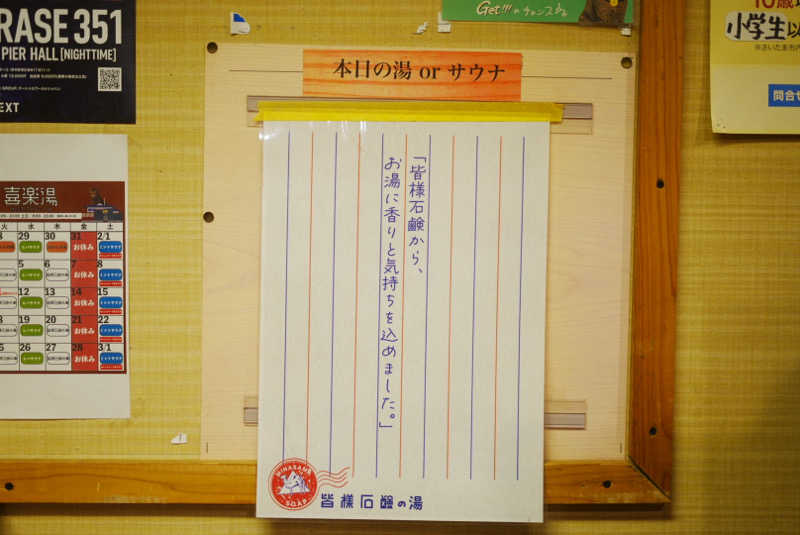 RASE 351
PIER HALL [NIGHTTIME]
EXT
Get!!!のチャンス
10歳
小学生以
※さいたま市内
問合せ
本日の湯 or サウナ
「皆様石鹸から、
お湯に香りと気持ちを込めました。」
MINASAMA
SOAP
皆様石鹸の湯
喜楽湯
火 水 木 金 土
29 30 31 2/1
お休み
5 6 7 8
お休み
12 13 14 15
お休み
19 20 21 22
お休み
26 27 28 3/1
お休み